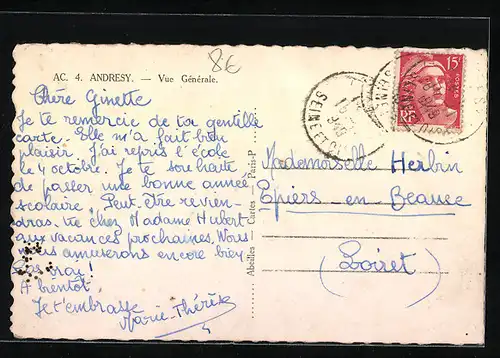 8€
AC. 4. ANDRESY. — Vue Générale.
Chère Ginette
Je te remercie de ta gentille
carte. Elle m'a fait bien
plaisir. J'ai repris l'école
le 4 octobre. Je te souhaite
de passer une bonne année
scolaire. Peut-être revien-
dras-tu chez Madame Hubert
aux vacances prochaines. Nous
nous amuserons encore bien,
pas vrai!
A bientôt.
Je t'embrasse
Marie-Thérèse
Abeilles Cartes Paris-P
SEINE
15F
POSTES
RF
Mademoiselle Herbin
Epiers en Beauce
(Loiret)